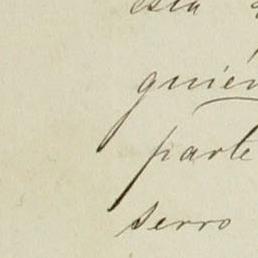 esta
quién
parte
serro